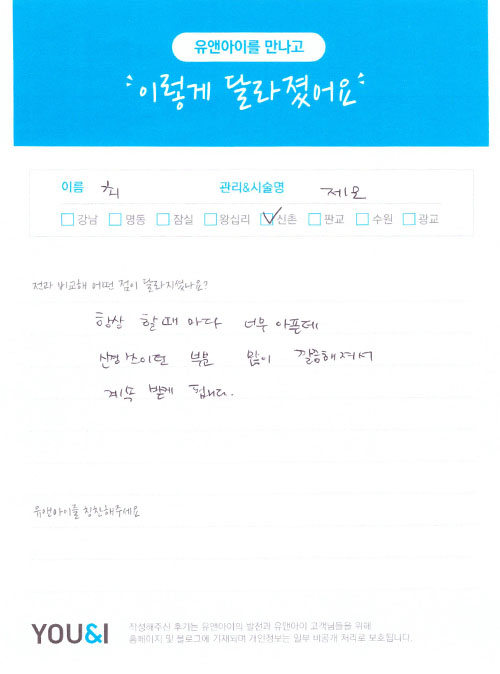 유앤아이를 만나고
이렇게 달라졌어요
이름 최 관리&시술명 제모
강남 명동 잠실 왕십리 신촌 판교 수원 광교
전과 비교해 어떤 점이 달라지셨나요?
항상 할때 마다 너무 아픈데
신경쓰이던 부분 많이 깔끔해져서
계속 받게 됩니다.
유앤아이를 칭찬해주세요
YOU&I
작성해주신 후기는 유앤아이의 발전과 유앤아이 고객님들을 위해
홈페이지 및 블로그에 기재되며 개인정보는 일부 비공개 처리로 보호됩니다.